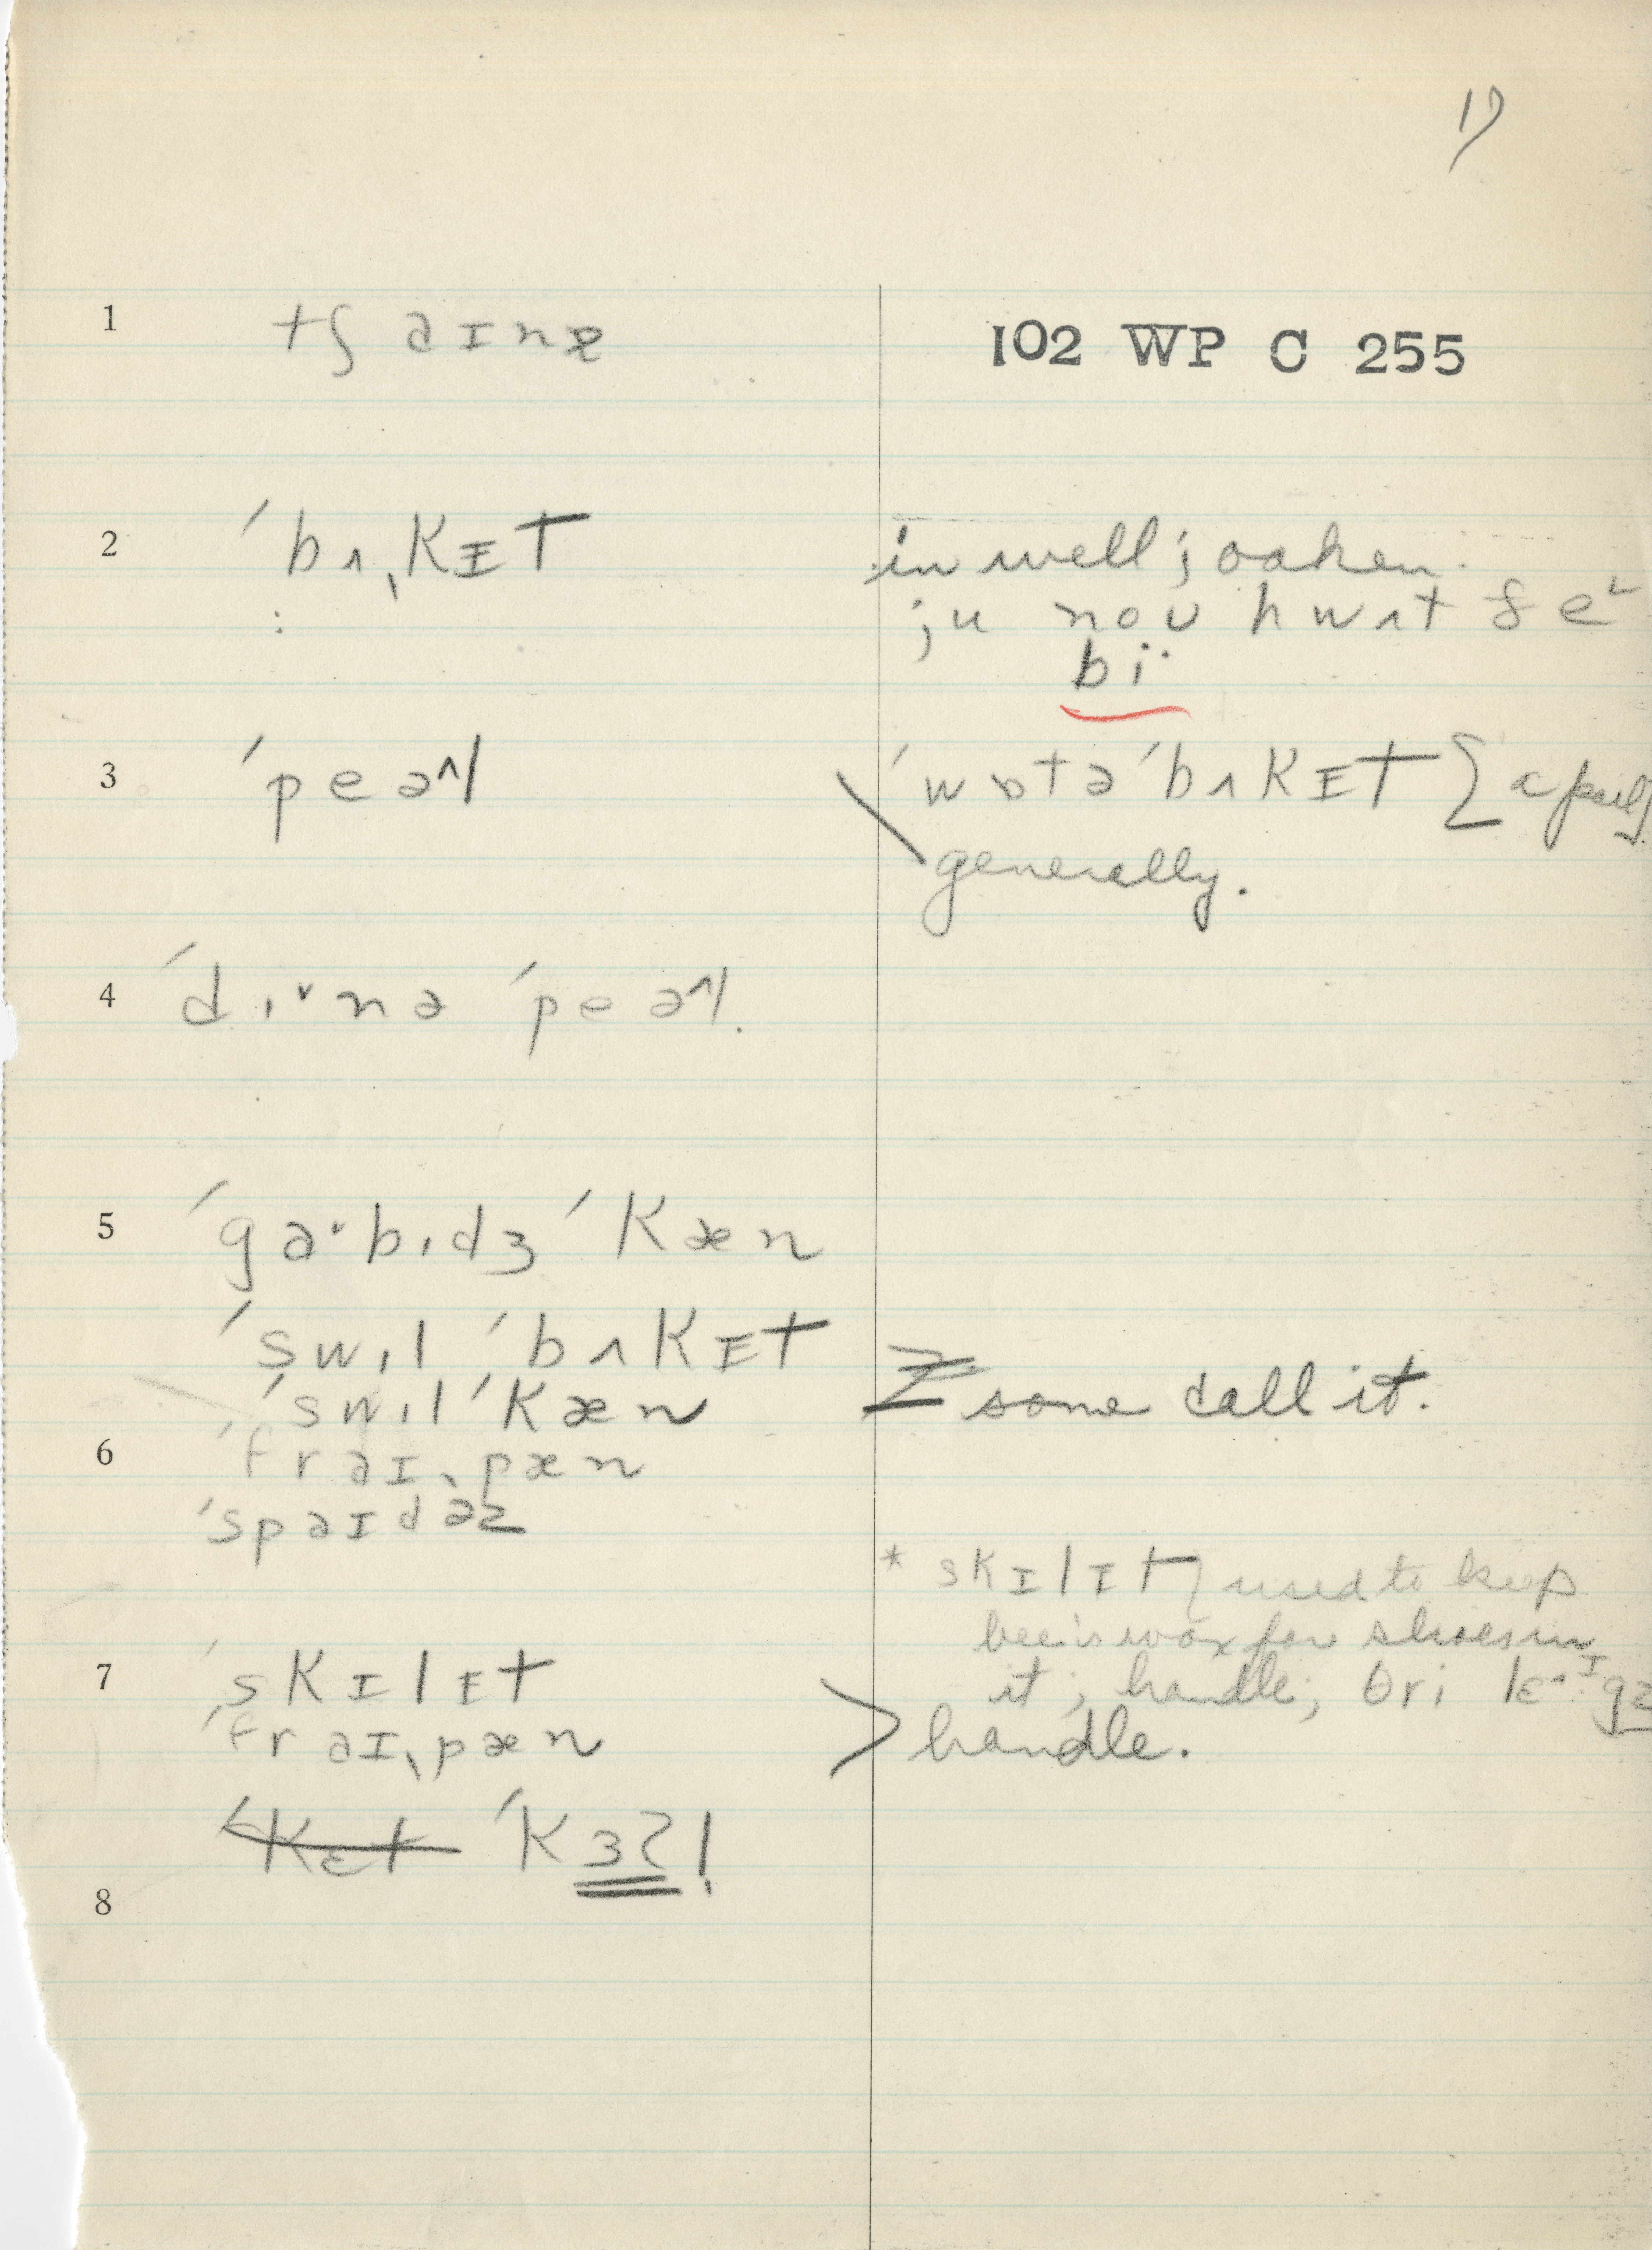 17
1 tʃaɪnə 102 WP C 255
2 ˈbʌˌkɪt in well; oaken.
ju noʊ hwʌt ðe
bi
3 ˈpeəl ˈwɒtəˈbʌkɪt a pail
generally.
4 ˈdɪnə ˈpeəl.
5 ˈgaˑbɪdʒ ˈkæn
ˈswɪl ˈbʌkɪt
ˈswɪl ˈkæn some call it.
6 ˈfraɪˌpæn
ˈspaɪdəz
* skɪlɪt used to keep
bee's wax for shoes in
7 ˈskɪlɪt it; handle; θri lɛˑɪgz
ˈfraɪˌpæn handle.
ˈkɛt ˈkɜʔl̩
8